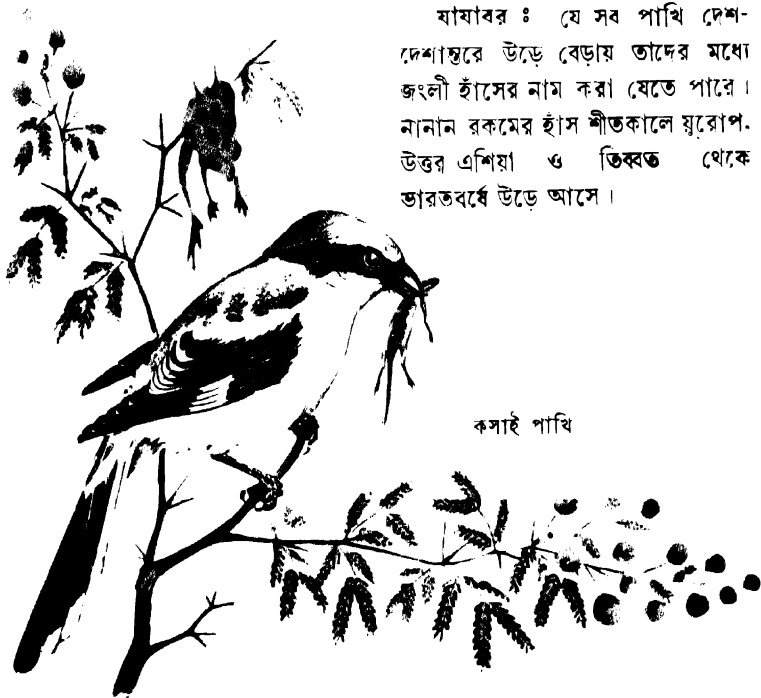 যাযাবর : যে সব পাখি দেশ-
দেশান্তরে উড়ে বেড়ায় তাদের মধ্যে
জংলী হাঁসের নাম করা যেতে পারে।
নানান রকমের হাঁস শীতকালে য়ুরোপ.
উত্তর এশিয়া ও তিব্বত থেকে
ভারতবর্ষে উড়ে আসে।
কসাই পাখি